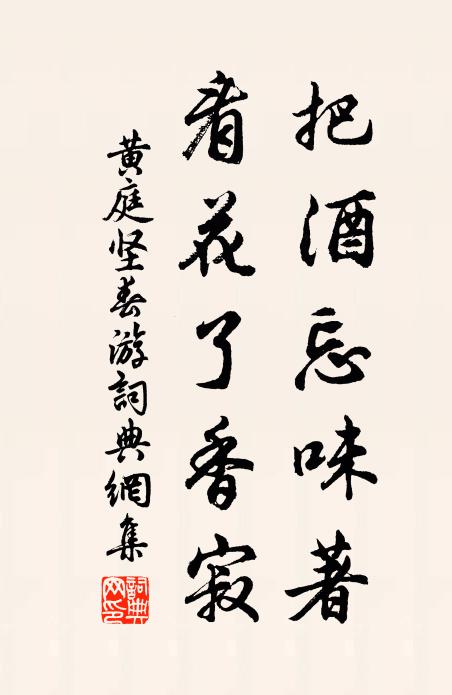 把酒忘味著
看花了香寂
黄庭坚春游詞典網集
詞典网印